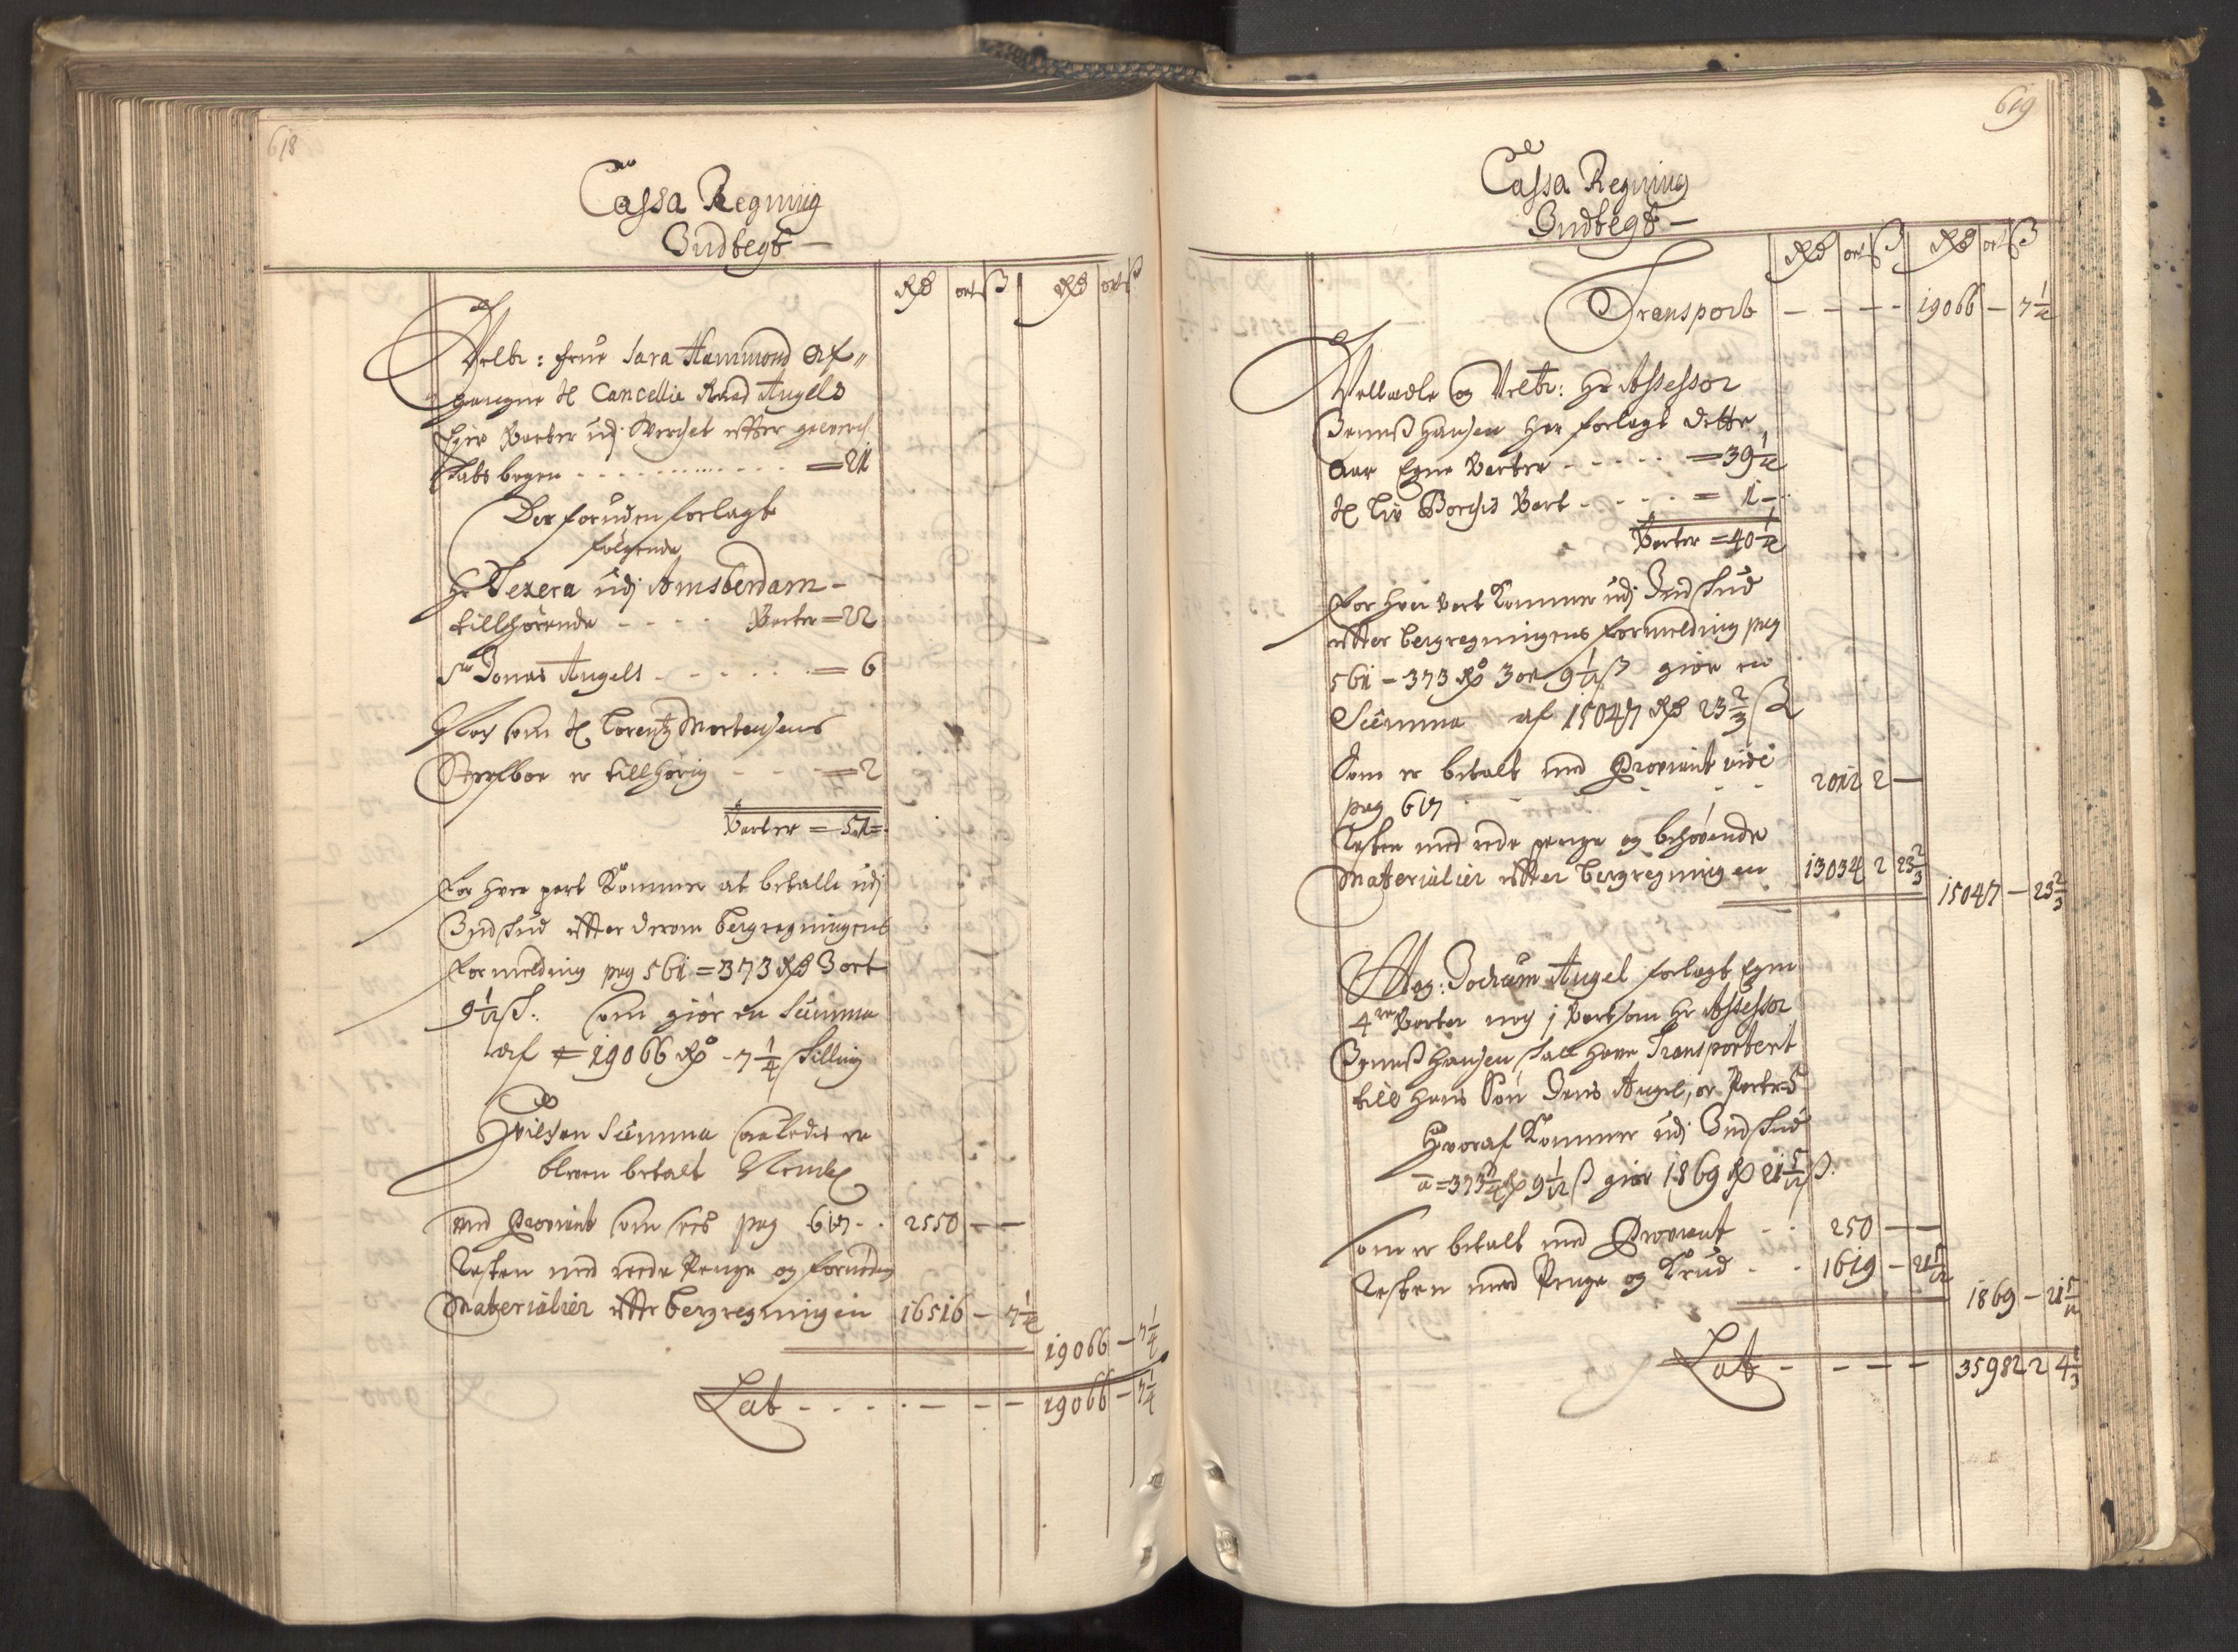 618
Cassa Regning
Indtegt
Rd ort ß Rd ort ß
Velb: Frue Sara Hammond Af„
gangne Sl Cancellie Raad Angels
Parter udj Verchet efter
=21
Der foruden forlagt
følgende
Hr Texera udj Amsterdam -
tillhørende - - - - Parter = 22
Sr Jonas Angels - - - - - = 6
som Sl Lorentz Mortensens
Sterfboe er tillhørig - - - = 2
Parter = 51=
For hver part Kommer at betalle udj
Indskud efter derom bergregningens
Formelding pag 561 = 373 Rd 3 ort
9 1/12 ß: som giør en Summa
af = 19066 Rd - 7 1/4 skilling
Hvilchen Summa saaledis er
bleven betalt Nembl
med Proviant som sees pag 617 - - 2550 - -
Resten med reede Penge og fornøden
Materialier efter bergregningen 16516 - 7 1/4
19066 - 7 1/4
Lat - - - - - - - 19066 - 7 1/4
619
Cassa Regning
Indtegt -
Rd ort ß Rd ort ß
Transport - - - - 19066 - 7 1/4
Velædle og Velb: Hr Assessor
Jenns Hansen har forlagt dette
Aar Egne Parter - - - - - = 39 1/4
Sl Liv Borchs Part - - - - = 1 -
Parter = 40 1/4
For hver Part Kommer udj Indskud
efter bergregningens formelding pag
561 - 373 Rd 3 ort 9 1/12 ß giør en
Summa af 15047 Rd 23 2/3 ß
Som er betalt med Proviant vide
pag 617 - - - - 2012 2 -
Resten med rede penge og behøvende
Materialier efter bergregningen 13034 2 23 2/3
15047 - 23 2/3
Mag: Jochum Angel forlagt Egne
4re Parter noch 1 Part som Hr Assessor
Jenns Hansen skall have Transportert
till hans Søn Denis Angel, er Parter = 5
Hvoraf Kommer udj Indskud
a = 373 3/4 Rd 9 1/12 ß giør 1869 Rd 21 5/12 ß.
som er betalt med Proviant - - 250 - -
Resten med Penge og Krud - - 1619 - 21 5/12
1869 - 21 5/12
Lat - - - - 35982 2 4 1/3